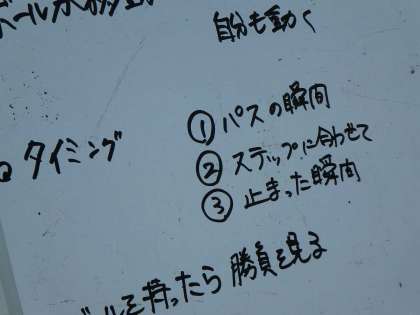 ボールが移動
自分も動く
タイミング
①パスの瞬間
②ステップに合わせて
③止まった瞬間
ールを持ったら勝負を見る